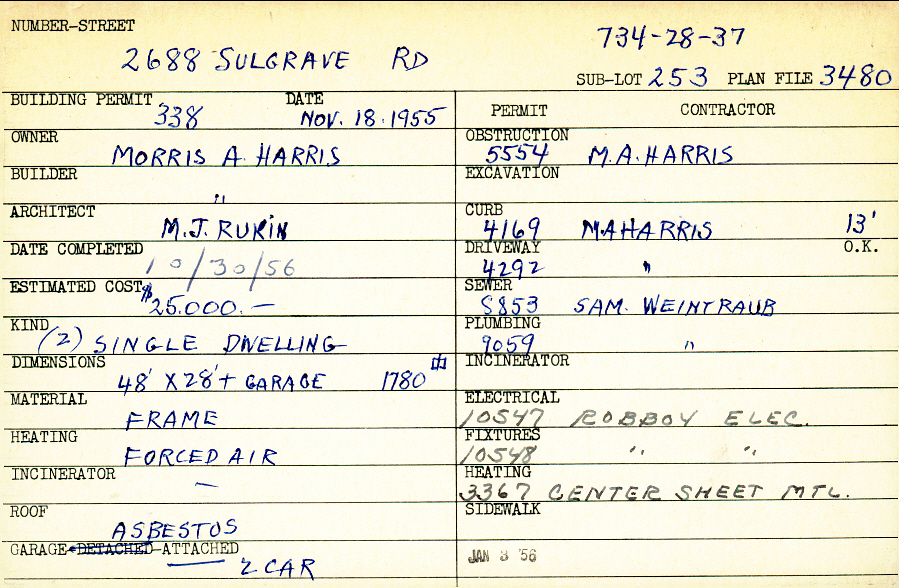 NUMBER-STREET
2688 SULGRAVE RD
734-28-37
SUB-LOT 253 PLAN FILE 3480
BUILDING PERMIT DATE
338 NOV. 18.1955
OWNER
MORRIS A. HARRIS
BUILDER
"
ARCHITECT
M.J. RUKIN
DATE COMPLETED
10/30/56
ESTIMATED COST
$25.000.—
KIND
(2) SINGLE DWELLING
DIMENSIONS
48' X 28' + GARAGE 1780
MATERIAL
FRAME
HEATING
FORCED AIR
INCINERATOR
—
ROOF
ASBESTOS
GARAGE-DETACHED-ATTACHED
2 CAR
PERMIT CONTRACTOR
OBSTRUCTION
5554 M.A. HARRIS
EXCAVATION
CURB
4169 M A HARRIS 13'
DRIVEWAY O.K.
4292 "
SEWER
8853 SAM. WEINTRAUB
PLUMBING
9059 "
INCINERATOR
ELECTRICAL
10547 ROBBOY ELEC.
FIXTURES
10548 " "
HEATING
3367 CENTER SHEET MTL.
SIDEWALK
JAN 3 '56